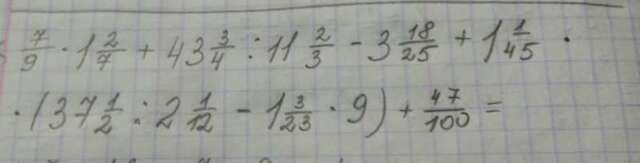 7/9 · 1 2/7 + 43 3/4 : 11 2/3 - 3 18/25 + 1 1/45 ·
· (37 1/2 : 2 1/12 - 1 3/23 · 9) + 47/100 =